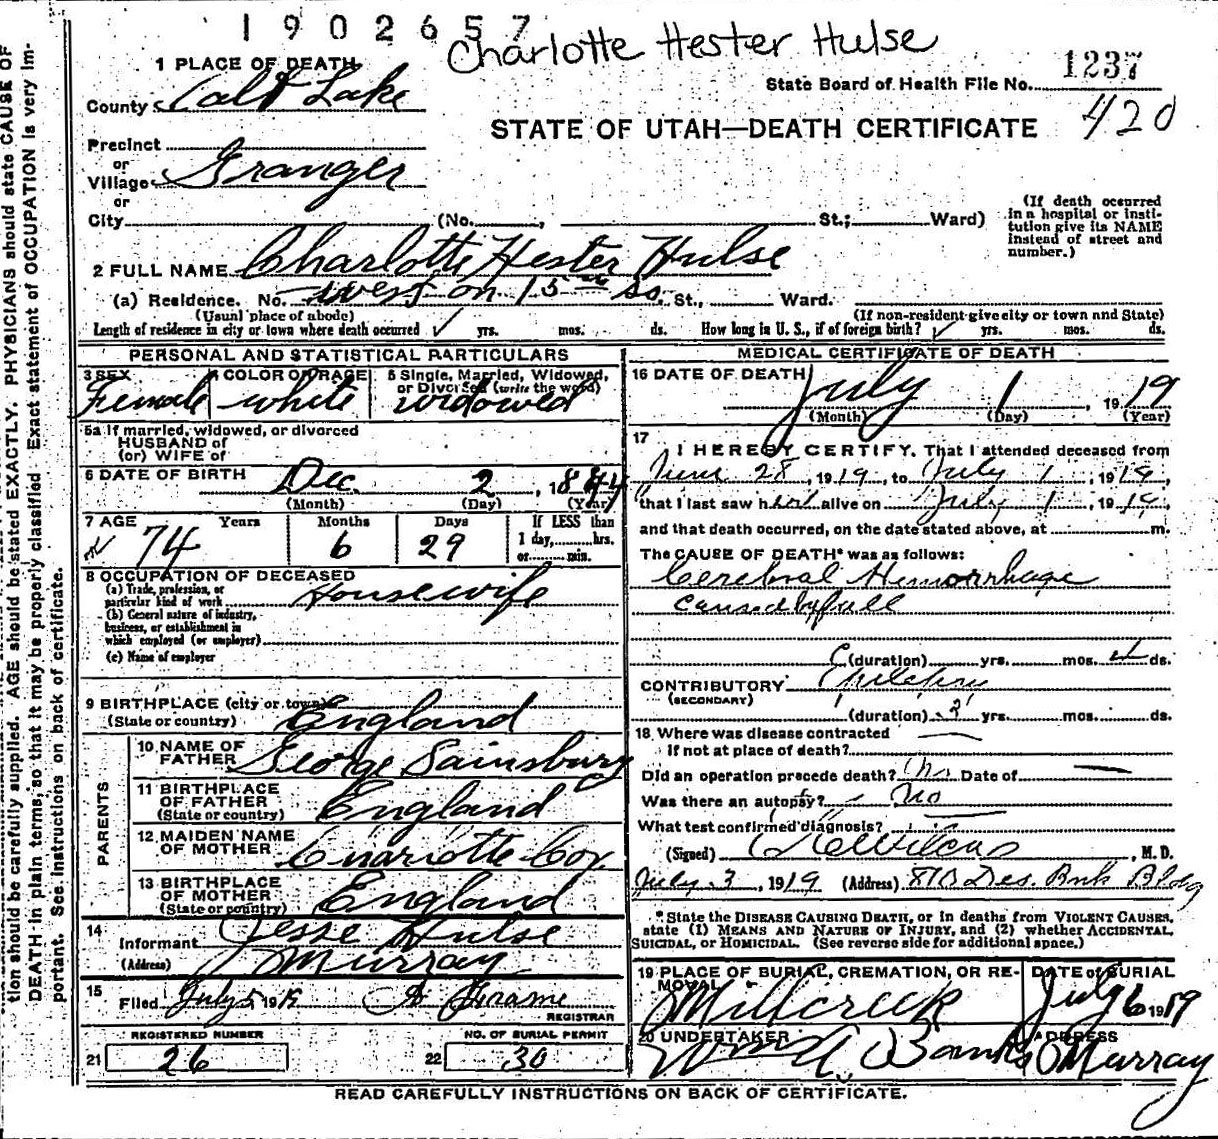 1902657
Charlotte Hester Hulse
1 PLACE OF DEATH
State Board of Health File No. 1237
County Salt Lake
420
STATE OF UTAH—DEATH CERTIFICATE
Precinct
or
Village Granger
or
City (No. , St.; Ward)
(If death occurred in a hospital or insti-
tution give its NAME
instead of street and
number.)
2 FULL NAME Charlotte Hester Hulse
(a) Residence. No. west on 15th so. St., Ward.
(Usual place of abode) (If non-resident give city or town and State)
Length of residence in city or town where death occurred ✓ yrs. mos. ds. How long in U. S., if of foreign birth? ✓ yrs. mos. ds.
PERSONAL AND STATISTICAL PARTICULARS
3 SEX
Female
4 COLOR OR RACE
white
5 Single, Married, Widowed,
or Divorced (write the word)
widowed
5a If married, widowed, or divorced
HUSBAND of
(or) WIFE of
6 DATE OF BIRTH Dec. 2, 1844
(Month) (Day) (Year)
7 AGE Years Months Days If LESS than
74 6 29 1 day, hrs.
or min.
8 OCCUPATION OF DECEASED
(a) Trade, profession, or
particular kind of work Housewife
(b) General nature of industry,
business, or establishment in
which employed (or employer)
(c) Name of employer
9 BIRTHPLACE (city or town)
(State or country) England
PARENTS
10 NAME OF
FATHER George Sainsbury
11 BIRTHPLACE
OF FATHER
(State or country) England
12 MAIDEN NAME
OF MOTHER Charlotte Cox
13 BIRTHPLACE
OF MOTHER
(State or country) England
14
Informant Jesse Hulse
(Address) Murray
15
Filed July 5 19
REGISTRAR
REGISTERED NUMBER
21 26
NO. OF BURIAL PERMIT
22 30
MEDICAL CERTIFICATE OF DEATH
16 DATE OF DEATH July 1, 1919
(Month) (Day) (Year)
17
I HEREBY CERTIFY, That I attended deceased from
June 28, 1919, to July 1, 1919,
that I last saw her alive on July 1, 1919,
and that death occurred, on the date stated above, at m.
The CAUSE OF DEATH* was as follows:
Cerebral Hemorrhage
caused by fall
(duration) yrs. mos. 4 ds.
CONTRIBUTORY
(SECONDARY)
(duration) 2 yrs. mos. ds.
18 Where was disease contracted
if not at place of death?
Did an operation precede death? No Date of
Was there an autopsy? No
What test confirmed diagnosis?
(Signed) , M. D.
July 3, 1919 (Address) 810 Des. Bnk Bldg
*State the DISEASE CAUSING DEATH, or in deaths from VIOLENT CAUSES,
state (1) MEANS AND NATURE OF INJURY, and (2) whether ACCIDENTAL,
SUICIDAL, or HOMICIDAL. (See reverse side for additional space.)
19 PLACE OF BURIAL, CREMATION, OR RE-
MOVAL
Millcreek
DATE of BURIAL
July 6 1919
20 UNDERTAKER
Wm A. Banks
ADDRESS
Murray
READ CAREFULLY INSTRUCTIONS ON BACK OF CERTIFICATE.
tion should be carefully supplied. AGE should be stated EXACTLY. PHYSICIANS should state CAUSE OF
DEATH in plain terms, so that it may be properly classified. Exact statement of OCCUPATION is very im-
portant. See instructions on back of certificate.